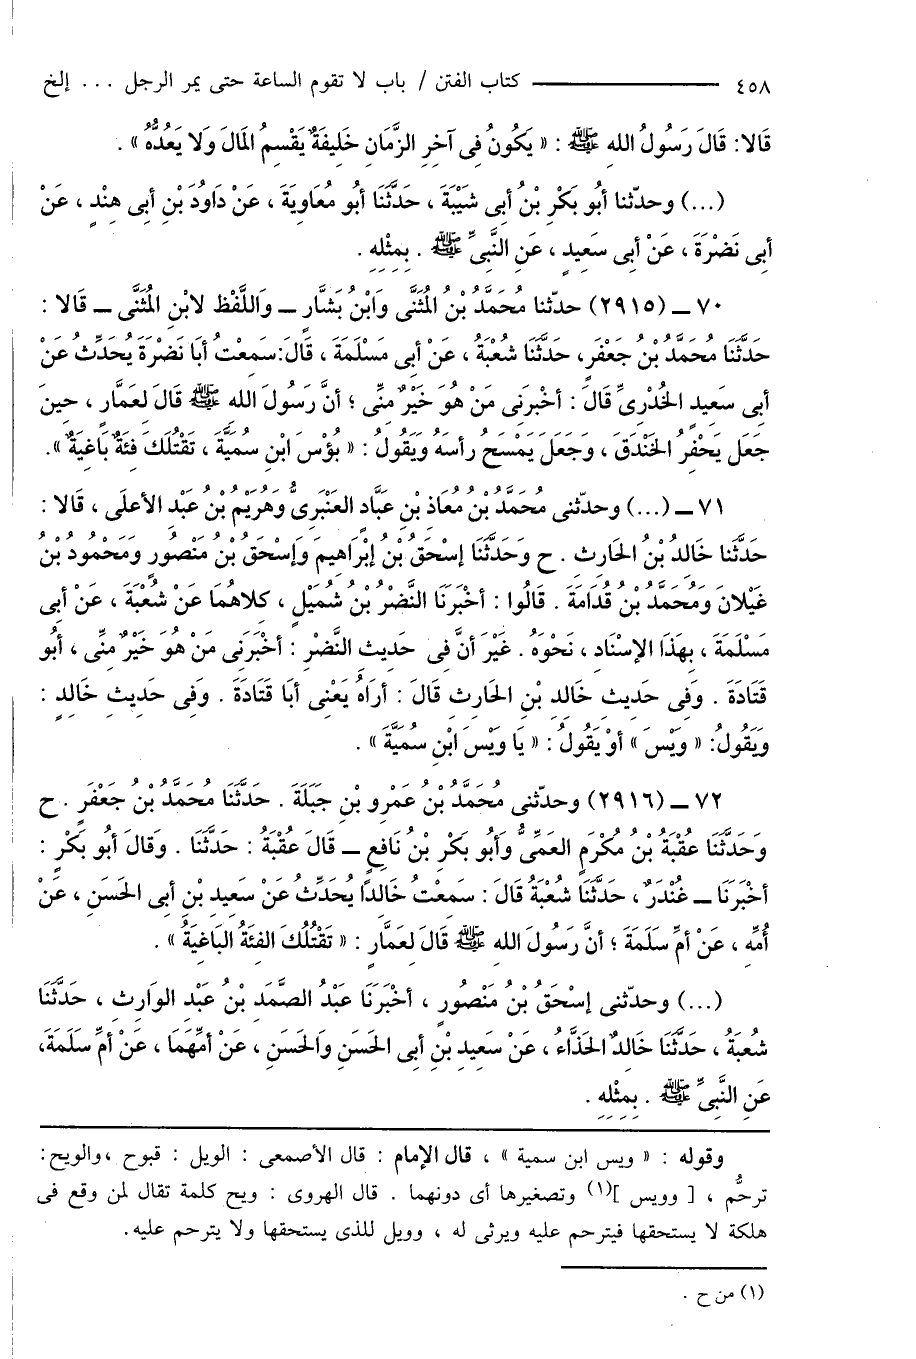 ٤٥٨ ــــــــ كتاب الفتن / باب لا تقوم الساعة حتى يمر الرجل ... إلخ
قَالا: قَالَ رَسُولُ الله ﷺ : « يَكُونُ فِى آخِرِ الزَّمَانِ خَلِيفَةٌ يَقْسِمُ الْمَالَ وَلا يَعُدُّهُ » .
(...) وحدّثنا أَبُو بَكْرِ بْنُ أَبِى شَيْبَةَ ، حَدَّثَنَا أَبُو مُعَاوِيَةَ ، عَنْ دَاوُدَ بْنِ أَبِى هِنْدٍ ، عَنْ
أَبِى نَضْرَةَ ، عَنْ أَبِى سَعِيدٍ ، عَنِ النَّبِىِّ ﷺ . بِمِثْلِهِ .
٧٠ ــ (٢٩١٥) حدّثنا مُحَمَّدُ بْنُ الْمُثَنَّى وَابْنُ بَشَّارٍ ــ وَاللَّفْظُ لابْنِ الْمُثَنَّى ــ قَالا :
حَدَّثَنَا مُحَمَّدُ بْنُ جَعْفَرٍ، حَدَّثَنَا شُعْبَةُ ، عَنْ أَبِى مَسْلَمَةَ ، قَالَ:سَمِعْتُ أَبَا نَضْرَةَ يُحَدِّثُ عَنْ
أَبِى سَعِيدٍ الْخُدْرِىِّ قَالَ : أَخْبَرَنِى مَنْ هُوَ خَيْرٌ مِنِّى ؛ أَنَّ رَسُولَ الله ﷺ قَالَ لِعَمَّارٍ ، حِينَ
جَعَلَ يَحْفِرُ الْخَنْدَقَ ، وَجَعَلَ يَمْسَحُ رَأْسَهُ وَيَقُولُ : « بُؤْسَ ابْنِ سُمَيَّةَ ، تَقْتُلُكَ فِئَةٌ بَاغِيَةٌ ».
٧١ ــ (...) وحدّثنى مُحَمَّدُ بْنُ مُعَاذِ بْنِ عَبَّادٍ الْعَنْبَرِىُّ وَهُرَيْمُ بْنُ عَبْدِ الأَعْلَى ، قَالا :
حَدَّثَنَا خَالِدُ بْنُ الْحَارِثِ . ح وَحَدَّثَنَا إِسْحَقُ بْنُ إِبْرَاهِيمَ وَإِسْحَقُ بْنُ مَنْصُورٍ وَمَحْمُودُ بْنُ
غَيْلانَ وَمُحَمَّدُ بْنُ قُدَامَةَ . قَالُوا : أَخْبَرَنَا النَّضْرُ بْنُ شُمَيْلٍ ، كِلاهُمَا عَنْ شُعْبَةَ ، عَنْ أَبِى
مَسْلَمَةَ ، بِهَذَا الإِسْنَادِ ، نَحْوَهُ . غَيْرَ أَنَّ فِى حَدِيثِ النَّضْرِ : أَخْبَرَنِى مَنْ هُوَ خَيْرٌ مِنِّى ، أَبُو
قَتَادَةَ . وَفِى حَدِيثِ خَالِدِ بْنِ الْحَارِثِ قَالَ : أُرَاهُ يَعْنِى أَبَا قَتَادَةَ . وَفِى حَدِيثِ خَالِدٍ :
وَيَقُولُ: « وَيْسَ » أَوْ يَقُولُ : « يَا وَيْسَ ابْنِ سُمَيَّةَ » .
٧٢ ــ (٢٩١٦) وحدّثنى مُحَمَّدُ بْنُ عَمْرِو بْنِ جَبَلَةَ . حَدَّثَنَا مُحَمَّدُ بْنُ جَعْفَرٍ . ح
وَحَدَّثَنَا عُقْبَةُ بْنُ مُكْرَمٍ الْعَمِّىُّ وَأَبُو بَكْرِ بْنُ نَافِعٍ ــ قَالَ عُقْبَةُ : حَدَّثَنَا . وَقَالَ أَبُو بَكْرٍ :
أَخْبَرَنَا ــ غُنْدَرٌ ، حَدَّثَنَا شُعْبَةُ قَالَ : سَمِعْتُ خَالِدًا يُحَدِّثُ عَنْ سَعِيدِ بْنِ أَبِى الْحَسَنِ ، عَنْ
أُمِّهِ ، عَنْ أُمِّ سَلَمَةَ ؛ أَنَّ رَسُولَ الله ﷺ قَالَ لِعَمَّارٍ : « تَقْتُلُكَ الْفِئَةُ الْبَاغِيَةُ » .
(...) وحدّثنى إِسْحَقُ بْنُ مَنْصُورٍ ، أَخْبَرَنَا عَبْدُ الصَّمَدِ بْنُ عَبْدِ الْوَارِثِ ، حَدَّثَنَا
شُعْبَةُ ، حَدَّثَنَا خَالِدٌ الْحَذَّاءُ ، عَنْ سَعِيدِ بْنِ أَبِى الْحَسَنِ وَالْحَسَنِ ، عَنْ أُمِّهِمَا ، عَنْ أُمِّ سَلَمَةَ،
عَنِ النَّبِىِّ ﷺ . بِمِثْلِهِ .
وقوله : « ويس ابن سمية » ، قال الإمام : قال الأصمعى : الويل : قبوح ،والويح:
ترحُّم ، [ وويس ](١) وتصغيرها أى دونهما . قال الهروى : ويح كلمة تقال لمن وقع فى
هلكة لا يستحقها فيترحم عليه ويرثى له ، وويل للذى يستحقها ولا يترحم عليه.
(١) من ح .